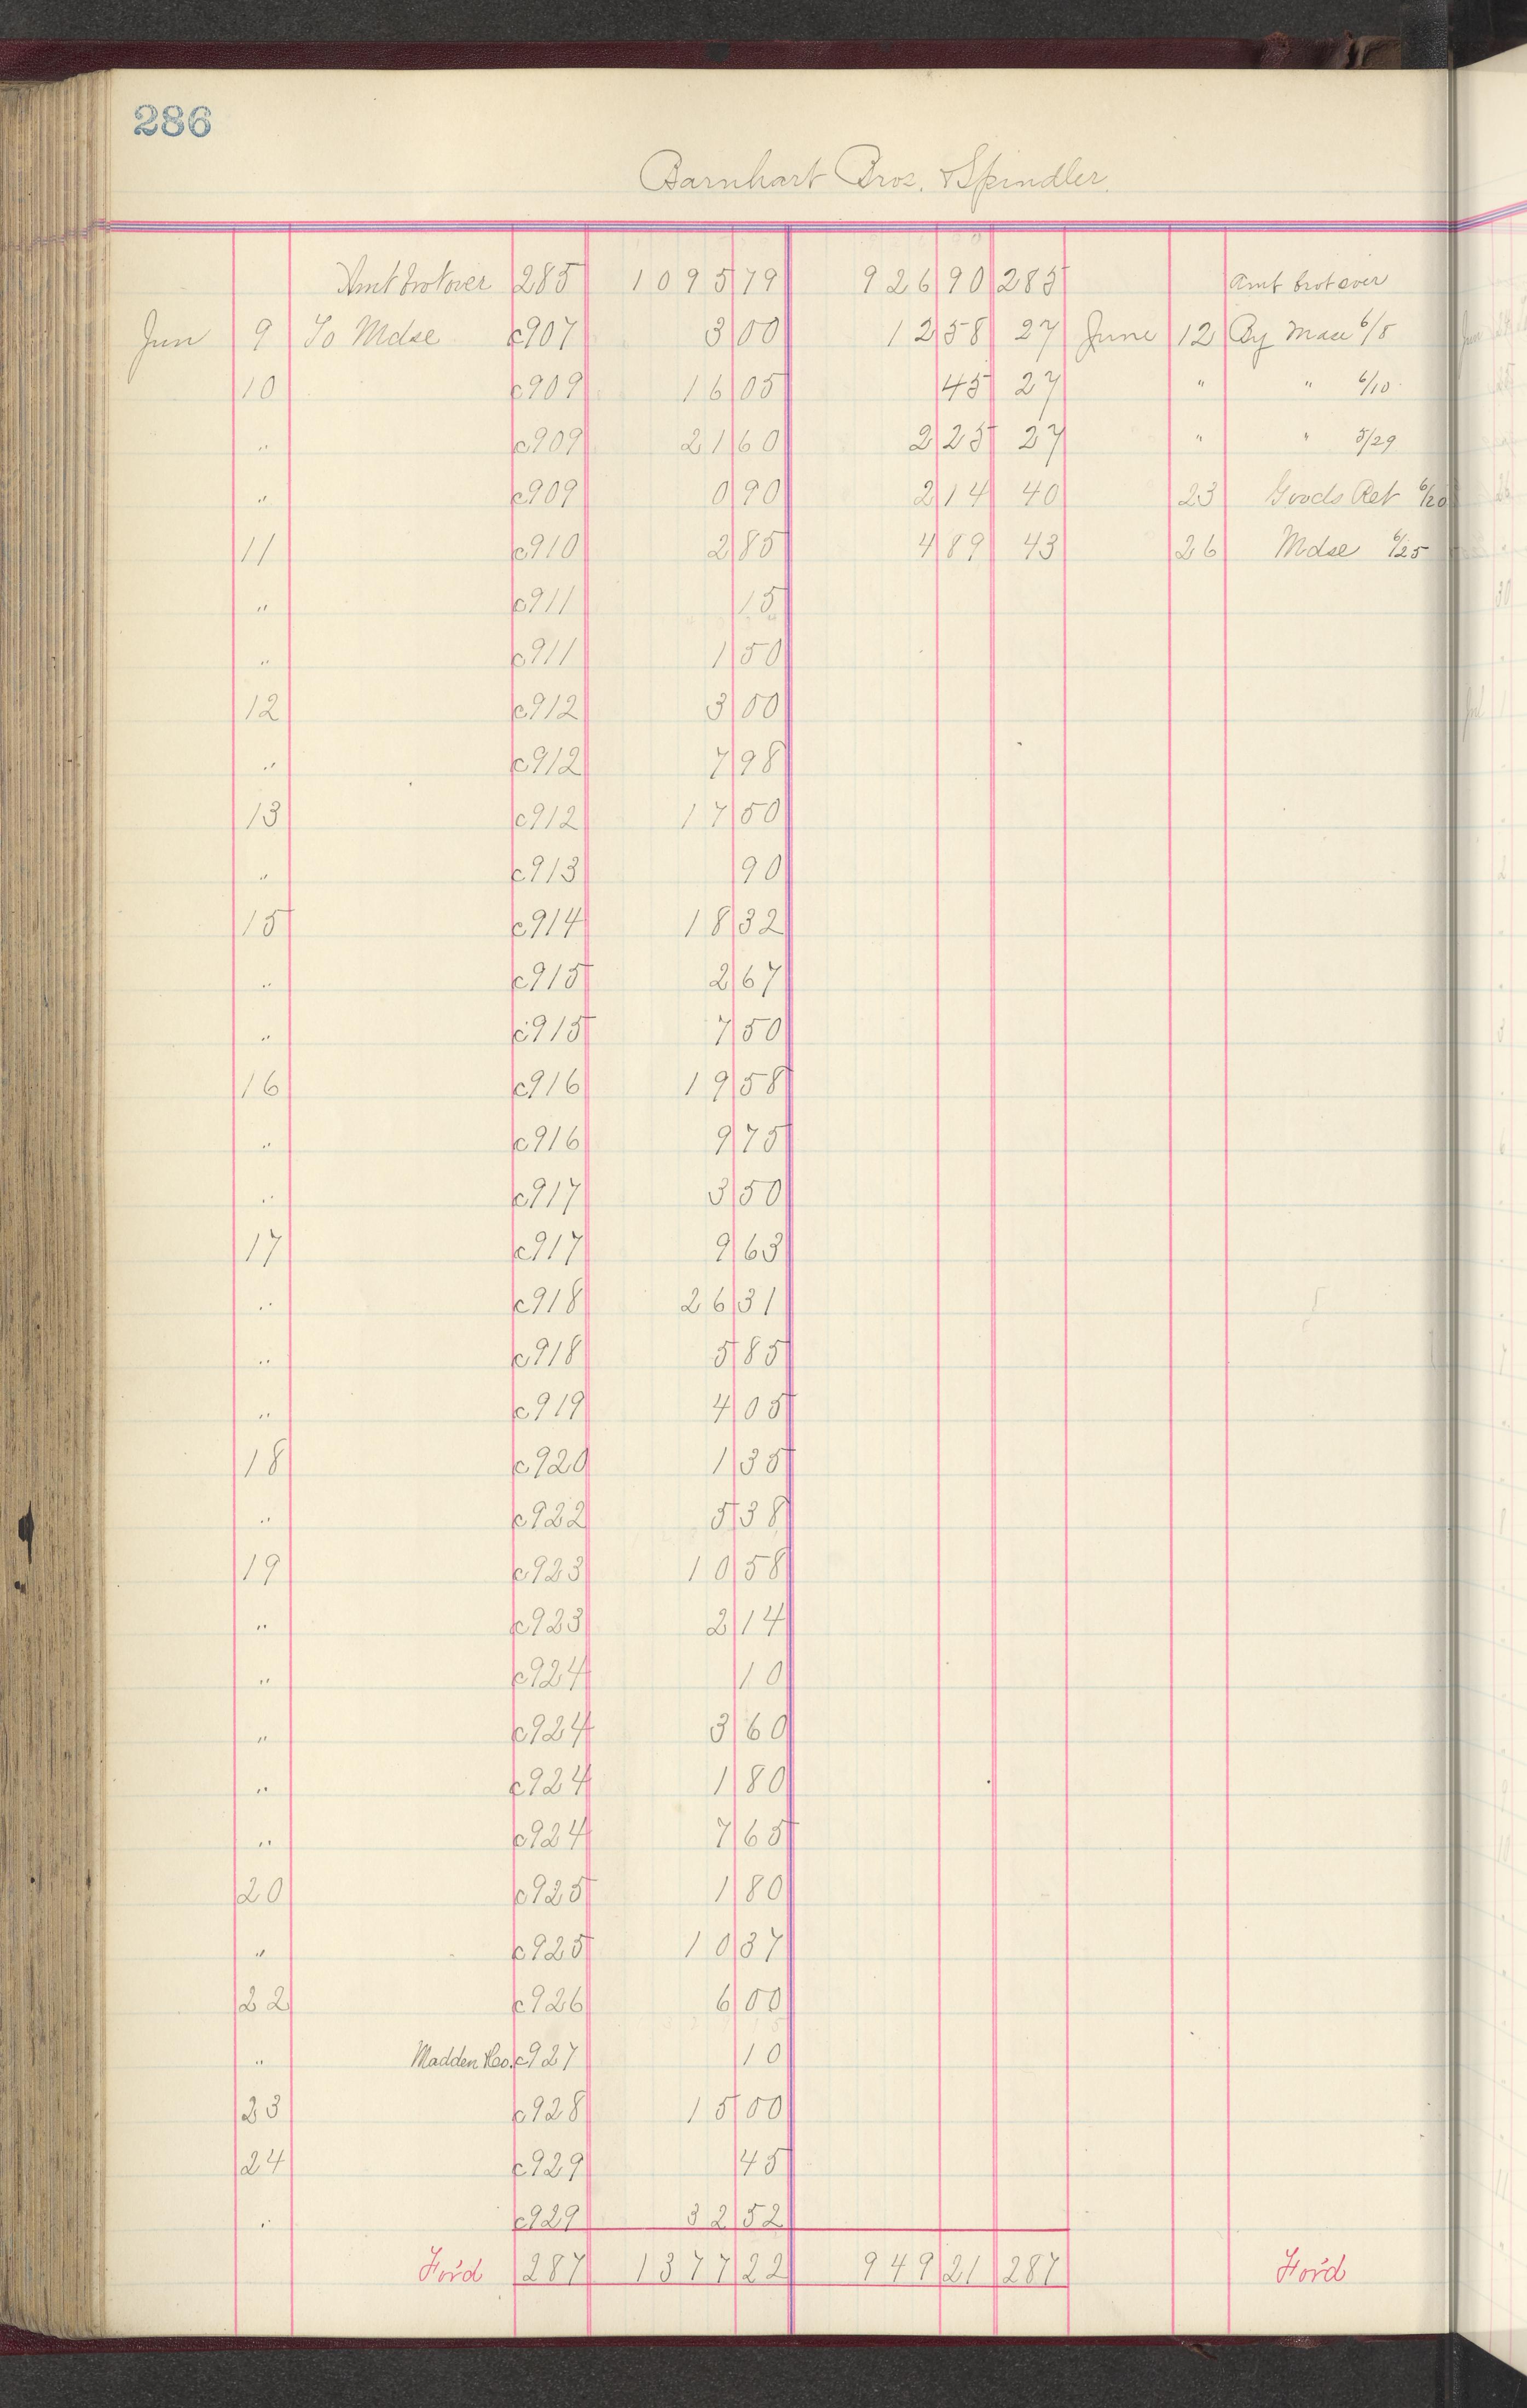 286
Barnhart Bros. & Spindler.
Amt brot over 285 1095 79 926 90 285 Amt brot over
Jun 9 To Mdse c907 3 00 12 58 27 June 12 By Mdse 6/8
10 c909 16 05 45 27 " " 6/10
" c909 21 60 2 25 27 " " 5/29
" c909 0 90 2 14 40 23 Goods Ret 6/20
11 c910 2 85 4 89 43 26 Mdse 6/25
" c911 15
" c911 1 50
12 c912 3 00
" c912 7 98
13 c912 17 50
" c913 90
15 c914 18 32
" c915 2 67
" c915 7 50
16 c916 19 58
" c916 9 75
" c917 3 50
17 c917 9 63
" c918 26 31
" c918 5 85
" c919 4 05
18 c920 1 35
" c922 5 38
19 c923 10 58
" c923 2 14
" c924 10
" c924 3 60
" c924 1 80
" c924 7 65
20 c925 1 80
" c925 10 37
22 c926 6 00
" Madden & Co. c927 10
23 c928 15 00
24 c929 45
" c929 32 52
For'd 287 1377 22 949 21 287 For'd